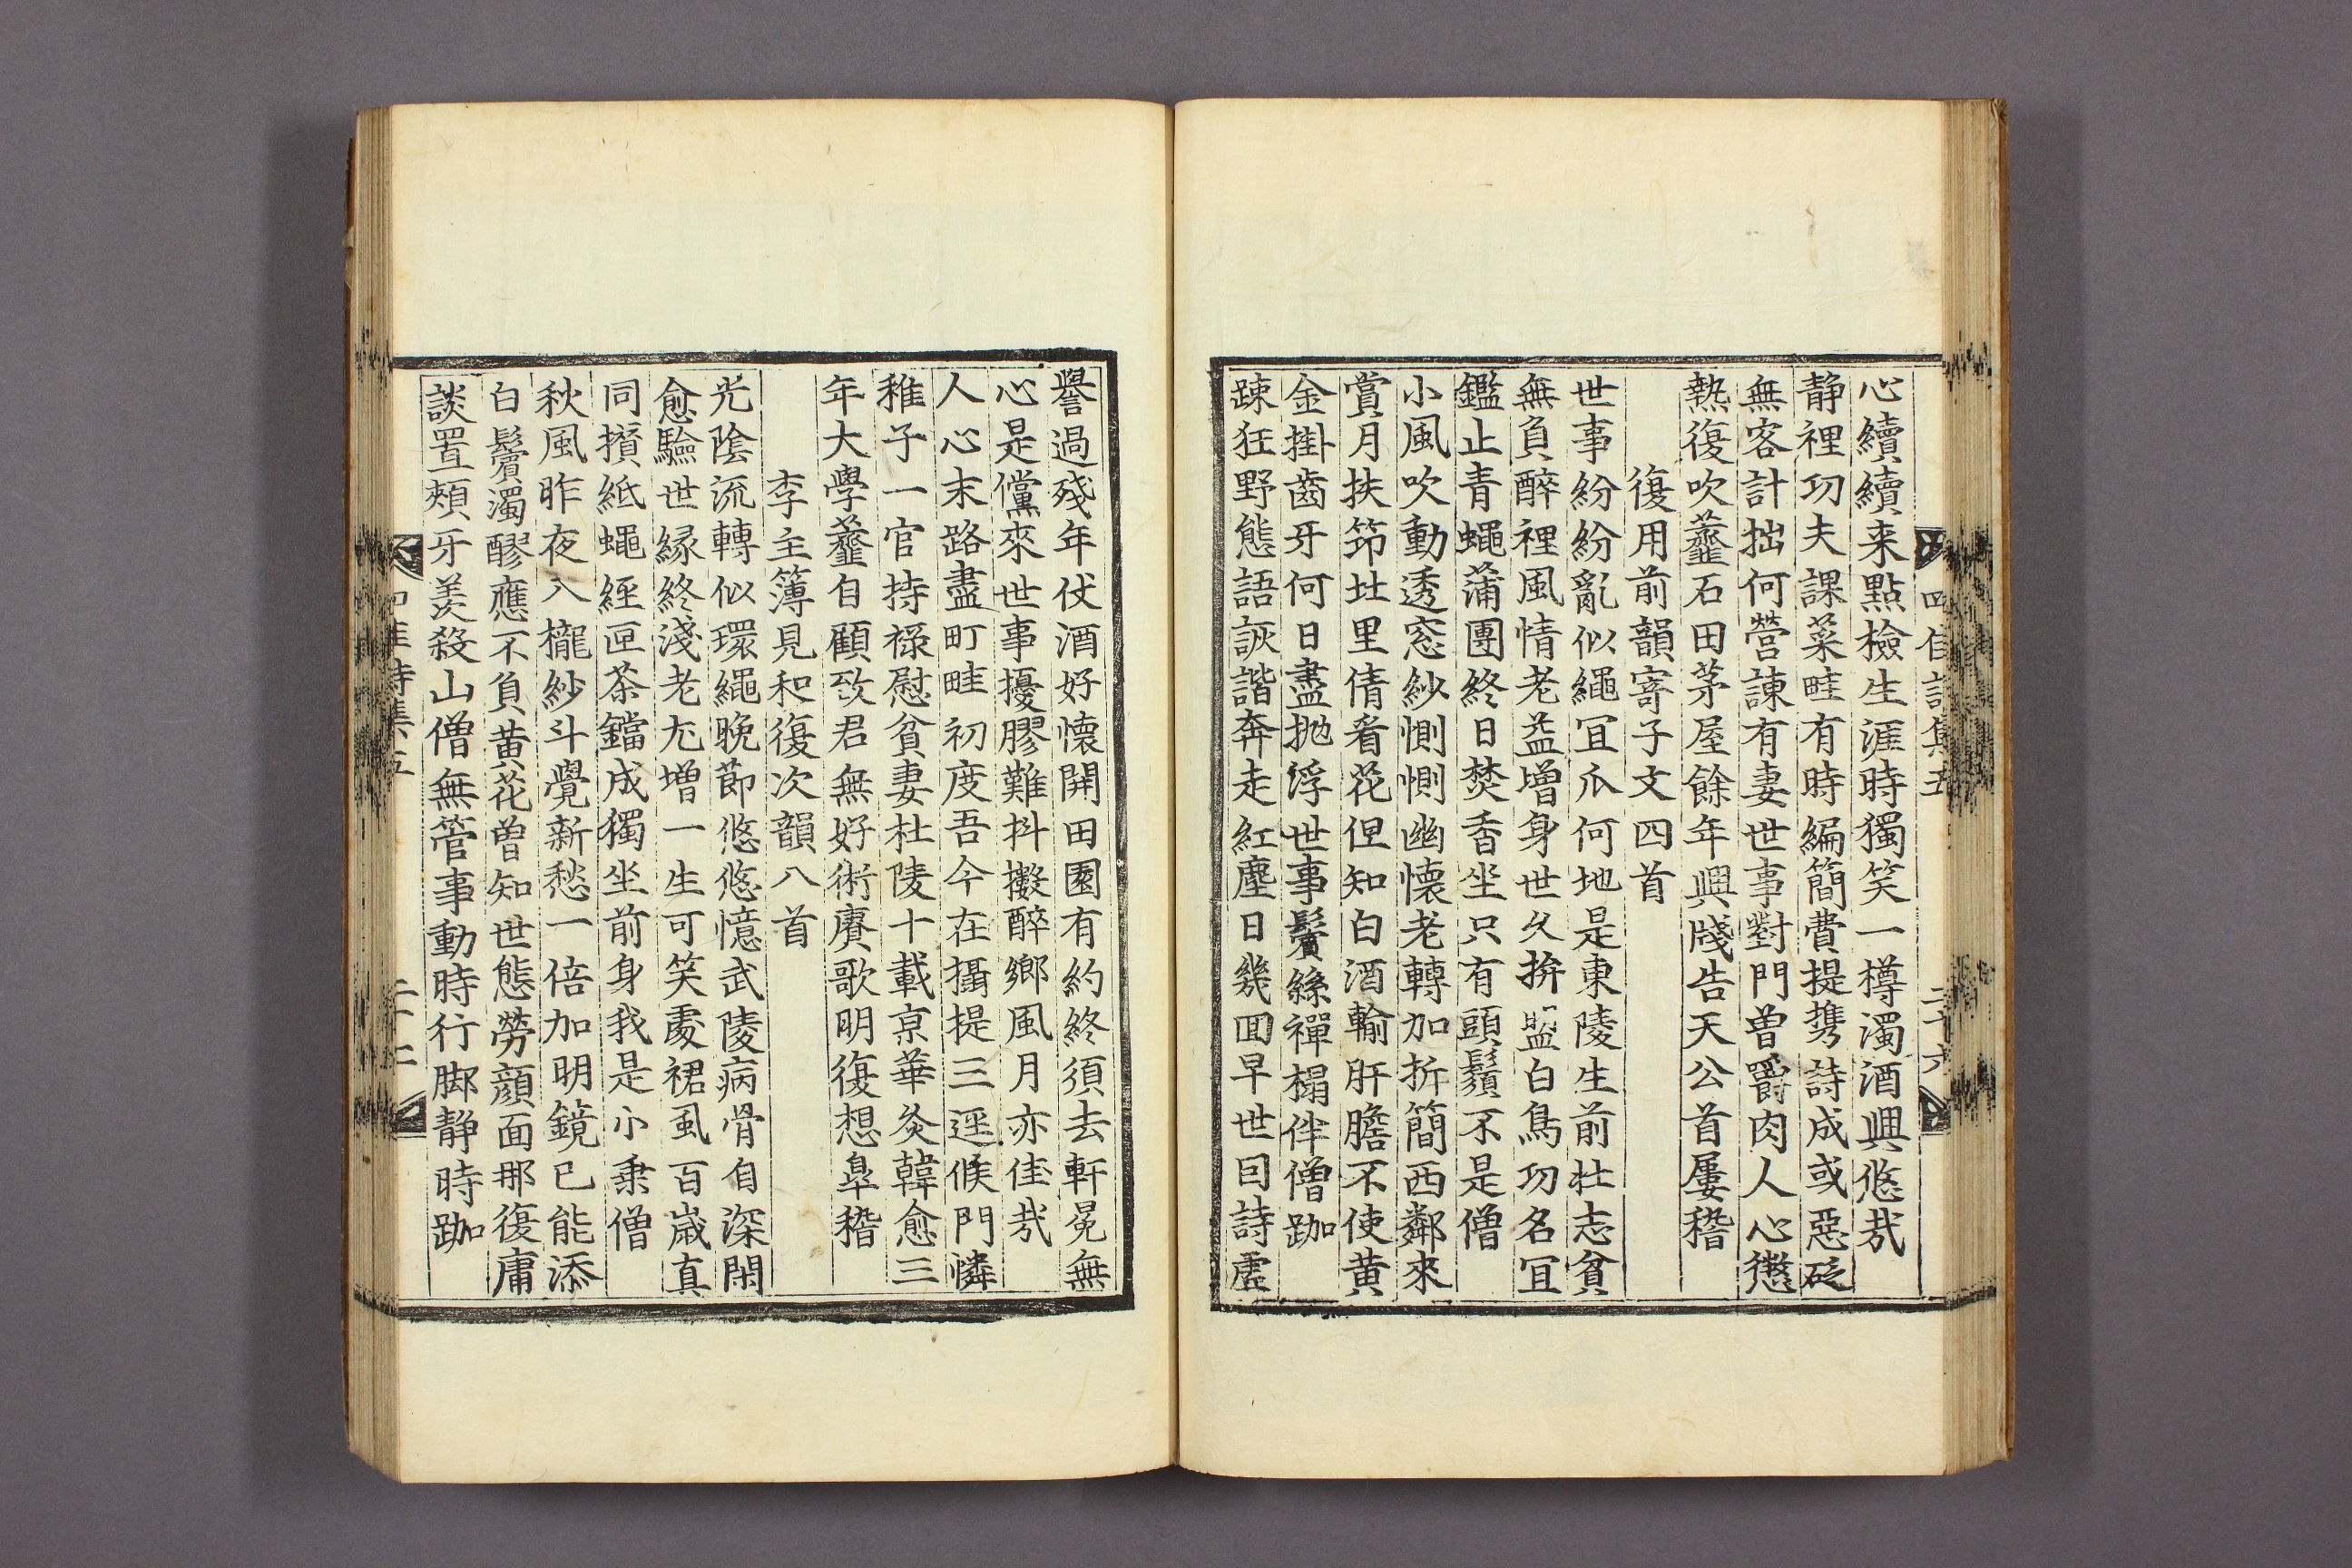 四佳詩集五
二十六
心續續来點檢生涯時獨笑一樽濁酒興悠㢤
静裡功夫課菜畦有時編簡費提携詩成或惡砭
無客計拙何營諫有妻世事對門曽嚼肉人心懲
熱復吹虀石田茅屋餘年興牋告天公首屢稽
復用前韻寄子文四首
世事紛紛亂似繩冝爪何地是東陵生前壯志貧
無負醉裡風情老益增身世久拚盟白鳥功名冝
鑑止青蠅蒲團終日焚香坐只有頭鬚不是僧
小風吹動透窓紗惻惻幽懷老轉加折簡西鄰來
賞月扶筇北里倩看花但知白酒輸肝膽不使黄
金掛齒牙何日盡抛浮世事鬢絲禪榻伴僧跏
踈狂野態語詼諧奔走紅塵日幾回早世曰詩虛
譽過殘年仗酒好懷開田園有約終須去軒冕無
心是儻來世事擾膠難抖擻醉鄉風月亦佳㢤
人心末路盡町畦初度吾今在攝提三逕候門憐
稚子一官持祿慰貧妻杜陵十載亰華灸韓愈三
年大學虀自顧致君無好術賡歌明復想臯稽
李主簿見和復次韻八首
光陰流轉似環繩晚節悠悠憶武陵病骨自深閑
愈驗世縁終淺老尤增一生可笑處裙虱百歲真
同攅紙蠅經匣茶鐺成獨坐前身我是小乗僧
秋風昨夜入櫳紗斗覺新愁一倍加明鏡已能添
白鬢濁醪應不負黄花曽知世態勞顔面那復庸
談置頰牙羡殺山僧無管事動時行脚静時跏